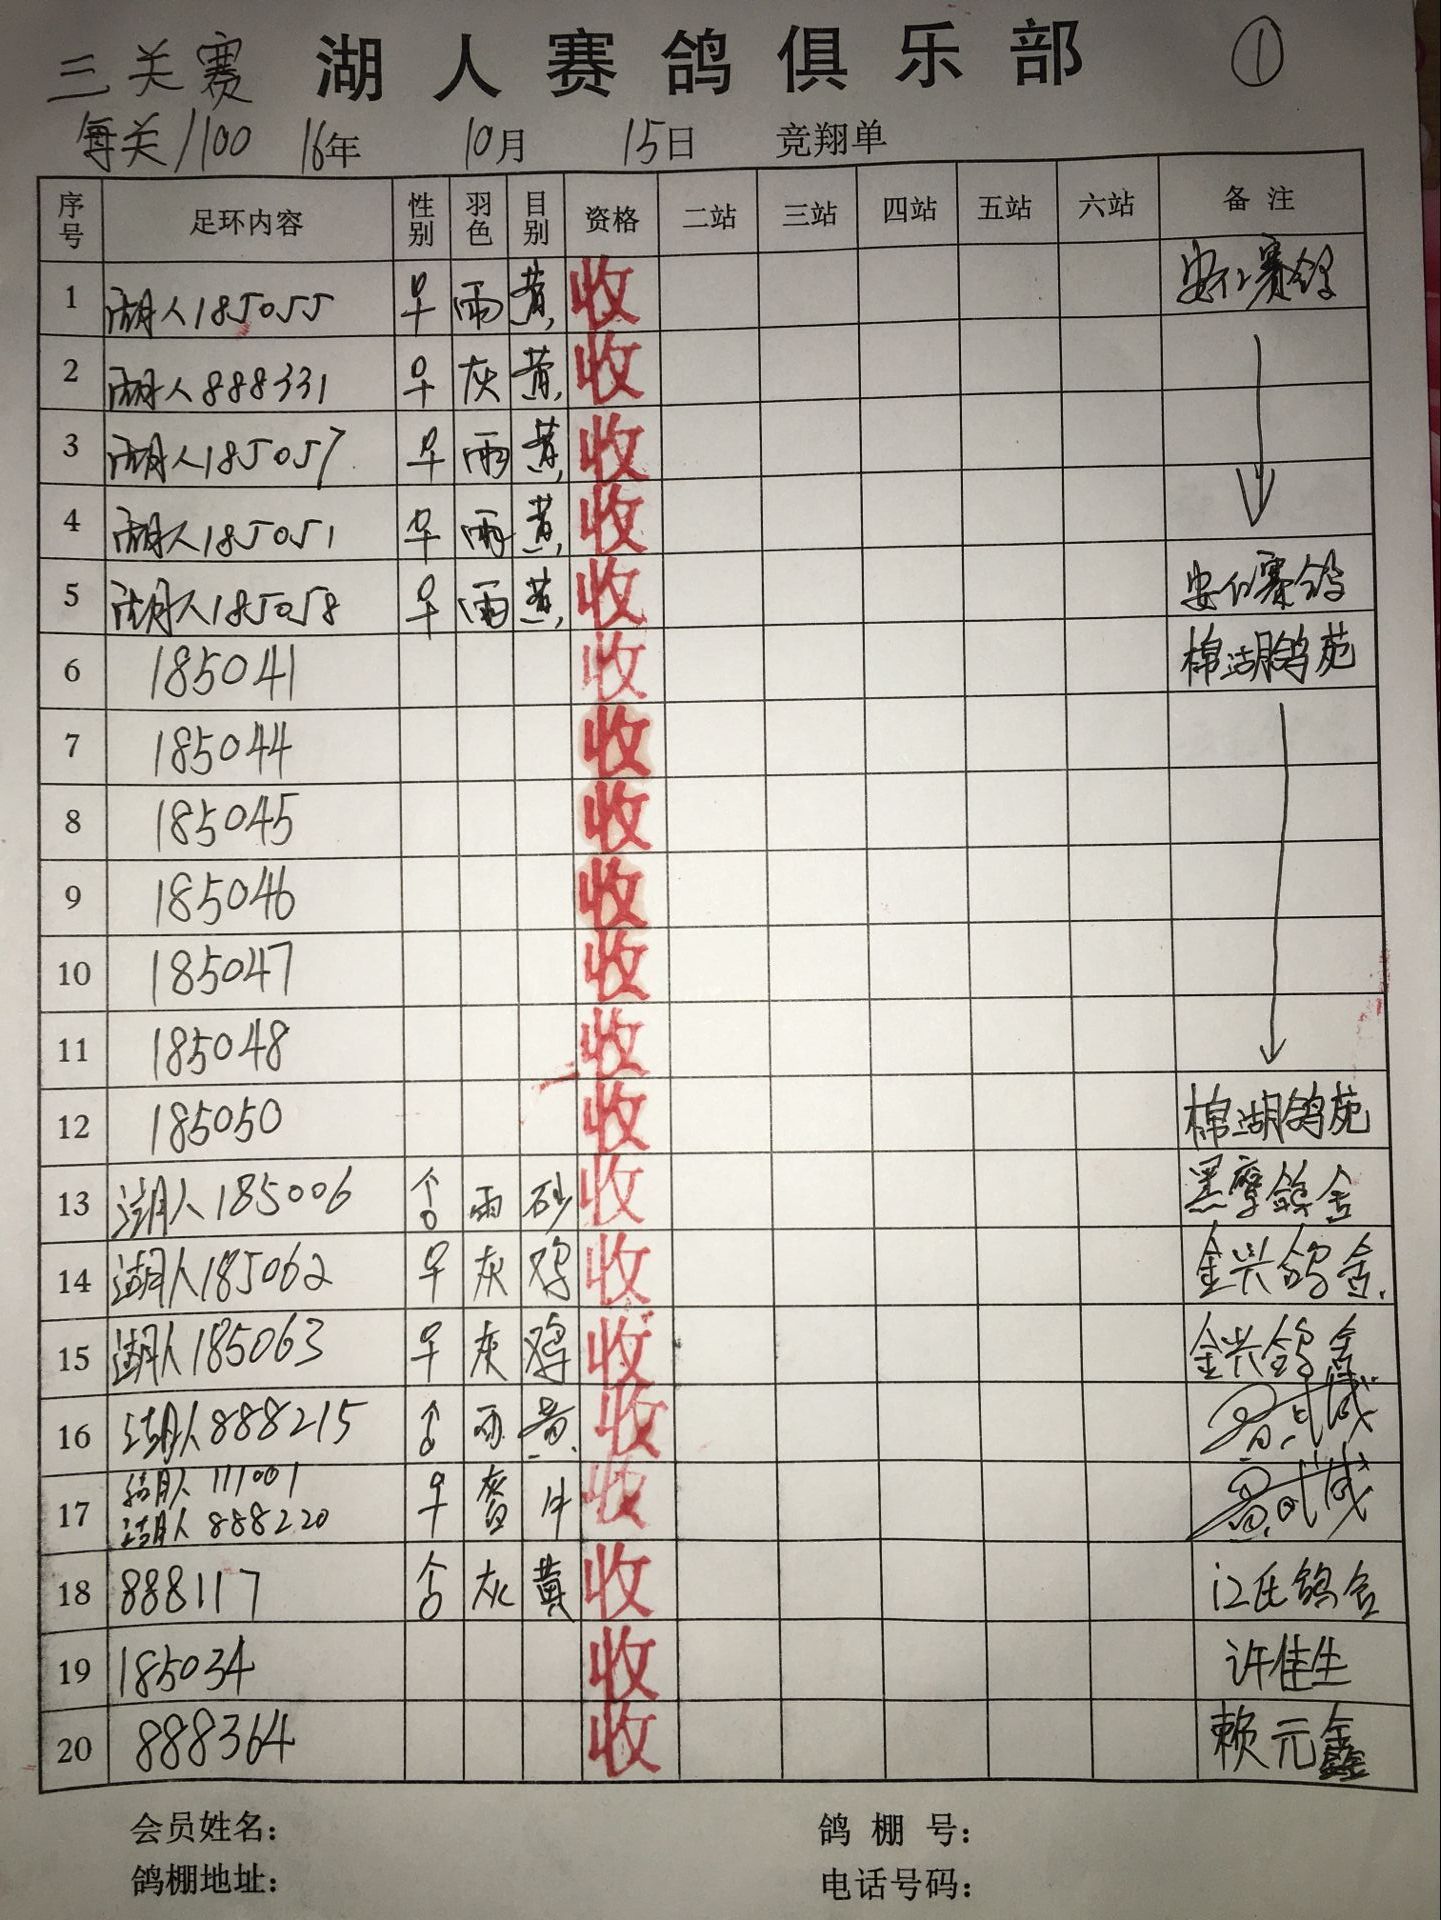 三关赛 湖人赛鸽俱乐部 ①
每关/100 16年 10月 15日 竞翔单
序号 足环内容 性别 羽色 目别 资格 二站 三站 四站 五站 六站 备注
1 湖人185055 ♀ 雨 黄 收 赛鸽
2 湖人888331 ♀ 灰 黄 收
3 湖人185057 ♀ 雨 黄 收
4 湖人185051 ♀ 雨 黄 收
5 湖人185058 ♀ 雨 黄 收 赛鸽
6 185041 收 棉湖鸽苑
7 185044 收
8 185045 收
9 185046 收
10 185047 收
11 185048 收
12 185050 收 棉湖鸽苑
13 湖人185006 ♂ 雨 砂 收 鸽舍
14 湖人185062 ♀ 灰 鸡 收 金兴鸽舍
15 湖人185063 ♀ 灰 鸡 收 金兴鸽舍
16 湖人888215 ♂ 雨 黄 收
17 湖人111001 湖人888220 ♀ 牛 收
18 888117 ♂ 灰 黄 收 江氏鸽舍
19 185034 收 许佳生
20 888364 收 赖元鑫
会员姓名： 鸽棚号：
鸽棚地址： 电话号码：